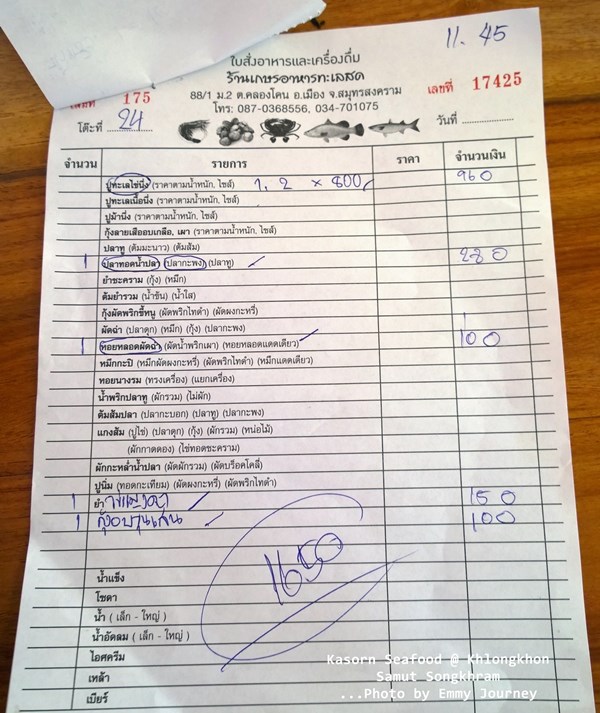 11.45
ใบสั่งอาหารและเครื่องดื่ม
ร้านเกษรอาหารทะเลสด
เล่มที่ 175
88/1 ม.2 ต.คลองโคน อ.เมือง จ.สมุทรสงคราม
เลขที่ 17425
โทร: 087-0368556, 034-701075
โต๊ะที่ 24
วันที่
จำนวน รายการ ราคา จำนวนเงิน
ปูทะเลไข่นึ่ง (ราคาตามน้ำหนัก, ไซส์) 1.2 × 800 960
ปูทะเลเนื้อนึ่ง (ราคาตามน้ำหนัก, ไซส์)
ปูม้านึ่ง (ราคาตามน้ำหนัก, ไซส์)
กุ้งลายเสืออบเกลือ, เผา (ราคาตามน้ำหนัก, ไซส์)
ปลาทู (ต้มมะนาว) (ต้มส้ม)
1 ปลาทอดน้ำปลา (ปลากะพง) (ปลาทู) 280
ยำชะคราม (กุ้ง) (หมึก)
ต้มยำรวม (น้ำข้น) (น้ำใส)
กุ้งผัดพริกขี้หนู (ผัดพริกไทดำ) (ผัดผงกะหรี่)
ผัดฉ่า (ปลาดุก) (หมึก) (กุ้ง) (ปลากะพง)
1 หอยหลอดผัดฉ่า (ผัดน้ำพริกเผา) (หอยหลอดแดดเดียว) 100
หมึกกะปิ (หมึกผัดผงกะหรี่) (ผัดพริกไทดำ) (หมึกแดดเดียว)
หอยนางรม (ทรงเครื่อง) (แยกเครื่อง)
น้ำพริกปลาทู (ผักรวม) (ไม่ผัก)
ต้มส้มปลา (ปลากะบอก) (ปลาทู) (ปลากะพง)
แกงส้ม (ปูไข่) (ปลาดุก) (กุ้ง) (ผักรวม) (หน่อไม้)
(ผักกาดดอง) (ไข่ทอดชะคราม)
ผักกะหล่ำน้ำปลา (ผัดผักรวม) (ผัดบร็อคโคลี่)
ปูนิ่ม (ทอดกะเทียม) (ผัดผงกะหรี่) (ผัดพริกไทดำ)
1 ยำ ไข่แมงดา 150
1 กุ้งอบวุ้นเส้น 100
1650
น้ำแข็ง
โซดา
น้ำ ( เล็ก - ใหญ่ )
น้ำอัดลม ( เล็ก - ใหญ่ )
ไอศครีม
เหล้า
เบียร์
Kasorn Seafood @ Khlongkhon
Samut Songkhram
...Photo by Emmy Journey